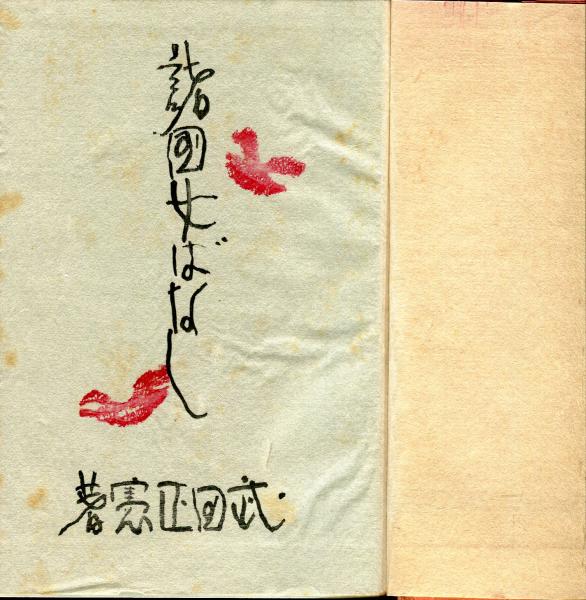 諸国女ばなし
武田正憲著